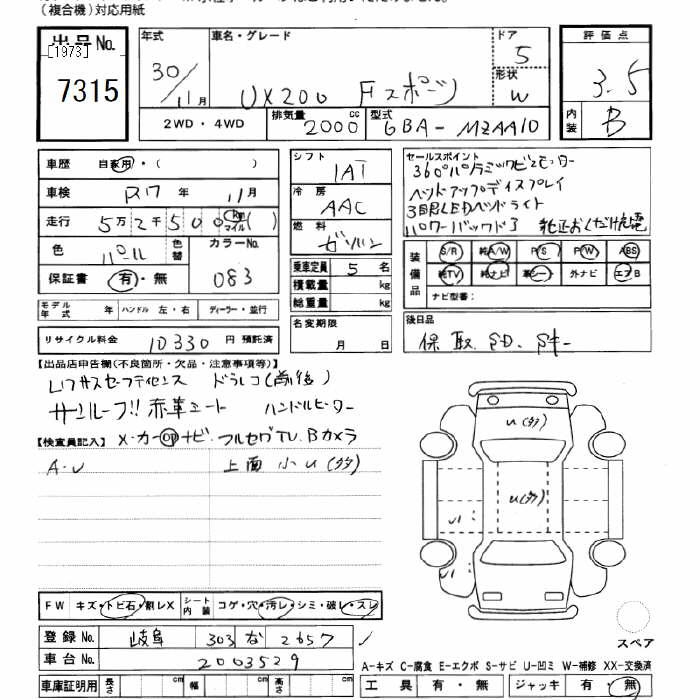 (複合機)対応用紙
出品No.
[1973]
7315
年式
30/11月
車名・グレード
UX200 Fスポーツ
ドア
5
形状
W
評価点
3.5
内装
B
2WD・4WD
排気量
2000cc
型式
6BA-MZAA10
車歴 自家用・( )
車検 R7年 11月
走行 5万2千500(km マイル)( )
色 パール
色替
カラーNo.
083
保証書 有・無
モデル年式 年 ハンドル 左・右 ディーラー・並行
リサイクル料金 10330円 預託済
シフト
1AT
冷房
AAC
燃料
ガソリン
乗車定員 5名
積載量 kg
総重量 kg
名変期限
月 日
セールスポイント
360°パノラミックビューモニター
ヘッドアップディスプレイ
3眼LEDヘッドライト
パワーバックドア 純正おくだけ充電
装備品
S/R 純A/W P/S P/W ABS
純TV 純ナビ 革シート 外ナビ エアB
ナビ型番:
後日品
保、取、SD、Sキー
【出品店申告欄(不良箇所・欠品・注意事項等)】
レクサスセーフティセンス ドラレコ(前後)
サンルーフ!! 赤革シート ハンドルヒーター
【検査員記入】 メーカーOPナビ フルセグTV.Bカメラ
A・U 上面 小U(多)
U(多)
U(多)
FW キズ・トビ石・割レX
シート内装 コゲ・穴・汚レ・シミ・破レ・スレ
登録No. 岐阜 303 な 2657
車台No. 2003529
車庫証明用 長さ cm 幅 cm 高さ cm
スペア
A-キズ C-腐食 E-エクボ S-サビ U-凹ミ W-補修 XX-交換済
工具 有・無 ジャッキ 有・無